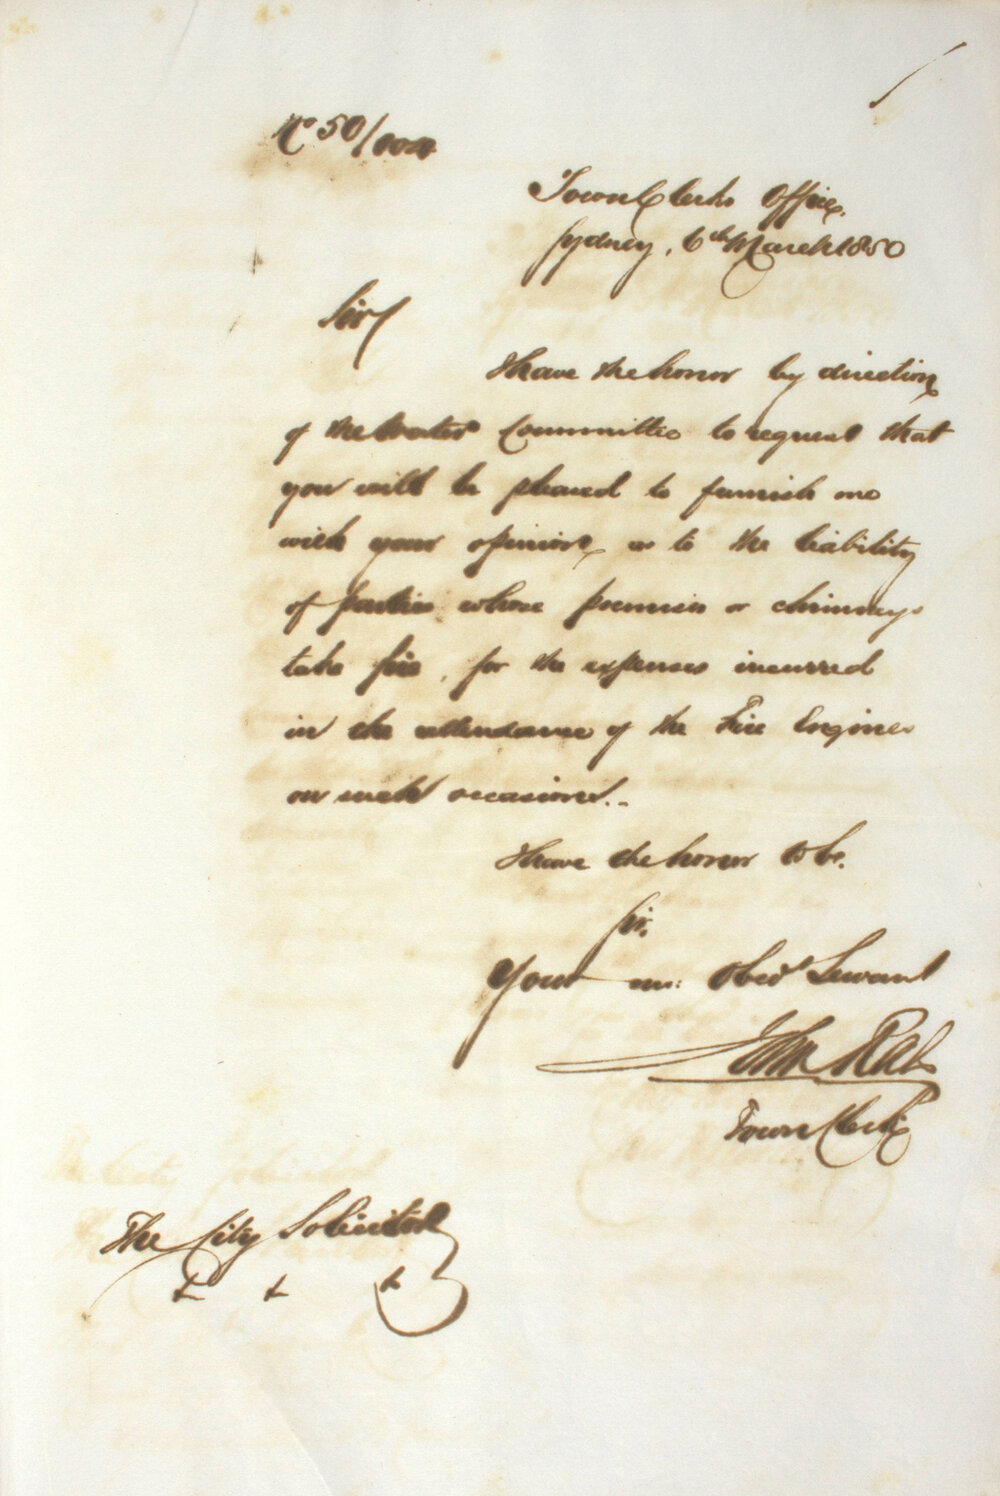 No 50/
Town Clerks Office,
Sydney, 6th March 1850
Sir,
I have the honor by direction
of the Water Committee to request that
you will be pleased to furnish me
with your opinion, as to the liability
of parties whose premises or chimneys
take fire, for the expenses incurred
in the attendance of the Fire Engines
on such occasions.
I have the honor to be,
Sir,
Your mo: Obedt Servant
John Rae
Town Clerk
The City Solicitor
&c &c &c